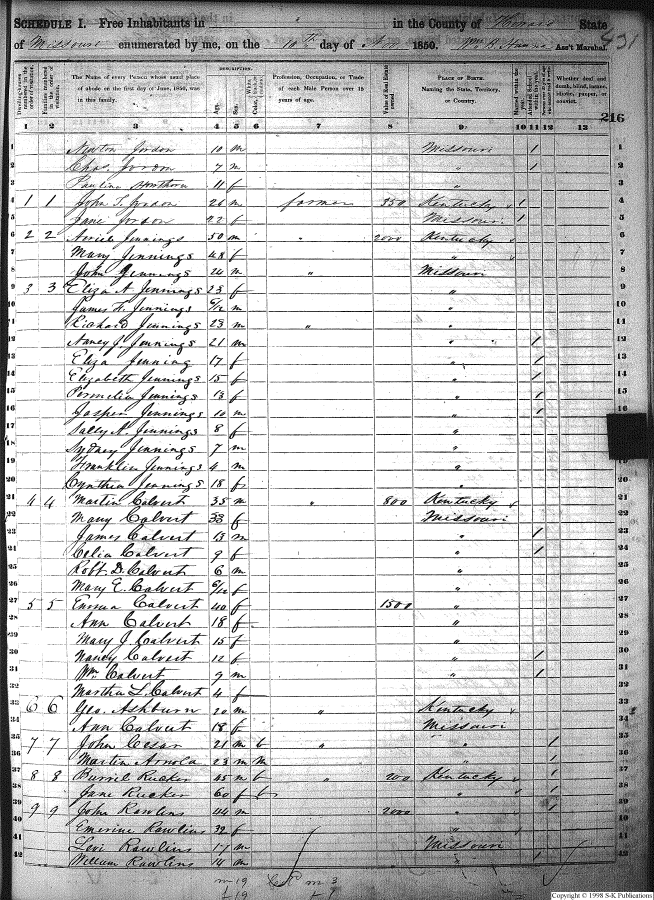 SCHEDULE I. Free Inhabitants in " in the County of Howard State
of Missouri enumerated by me, on the 10th day of Nov 1850. Wm B. Hanna Ass't Marshal. 431
Dwelling-houses numbered in the order of visitation.
Families numbered in the order of visitation.
The Name of every Person whose usual place of abode on the first day of June, 1850, was in this family.
DESCRIPTION.
Age.
Sex.
Color,
Profession, Occupation, or Trade of each Male Person over 15 years of age.
Value of Real Estate owned.
PLACE OF BIRTH.
Naming the State, Territory, or Country.
Married within the year.
Attended School within the year.
Whether deaf and dumb, blind, insane, idiotic, pauper, or convict.
216
1 2 3 4 5 6 7 8 9 10 11 12 13
1 Newton Jordon 10 m Missouri 1 1
2 Chas Jordon 7 m " 1 2
3 Paulina 11 f " 3
4 1 1 John S. Jordon 26 m farmer 350 Kentucky 1 4
5 Jane Jordon 22 f Missouri 1 5
6 2 2 Jennings 50 m " 2000 Kentucky 6
7 Mary Jennings 48 f " 7
8 John Jennings 24 m " Missouri 8
9 3 3 Eliza A Jennings 23 f " 9
10 James H. Jennings 6/12 m " 10
11 Richard Jennings 23 m " " 11
12 Nancy J. Jennings 21 m " 1 12
13 Eliza Jenning 17 f " 1 13
14 Elizabeth Jennings 15 f " 1 14
15 Permelia Jennings 13 f " 1 15
16 Jasper Jennings 10 m " 1 16
17 Sally A. Jennings 8 f "
18 Sydney Jennings 7 m " 18
19 Franklin Jennings 4 m " 19
20 Cynthia Jennings 18 f " 20
21 4 4 Martin Calvert 35 m " 800 Kentucky 21
22 Mary Calvert 33 f Missouri 22
23 James Calvert 13 m " 1 23
24 Celia Calvert 9 f " 1 24
25 Robt D. Calvert 6 m " 25
26 Mary E. Calvert 6/12 f " 26
27 5 5 Emma Calvert 40 f 1500 " 27
28 Ann Calvert 18 f " 28
29 Mary J. Calvert 15 f " 29
30 Nancy Calvert 12 f " 1 30
31 Wm Calvert 9 m " 1 31
32 Martha L. Calvert 4 f 32
33 6 6 Geo. Ashburn 20 m " Kentucky 33
34 Ann Calvert 18 f Missouri 34
35 7 7 John Cesar 21 m b " " 1 35
36 Martin Arnold 23 m m " 1 36
37 8 8 Burrel Rucker 45 m b " 200 Kentucky 1 37
38 Jane Rucker 60 f b " 1 38
39 9 9 John Rawlins 44 m 2000 " 1 39
40 Emerine Rawlins 32 f " 1 40
41 Levi Rawlins 17 m Missouri 41
42 William Rawlins 14 m " 1 42
m 19 m 3
f 19 f 1
Copyright © 1998 S-K Publications